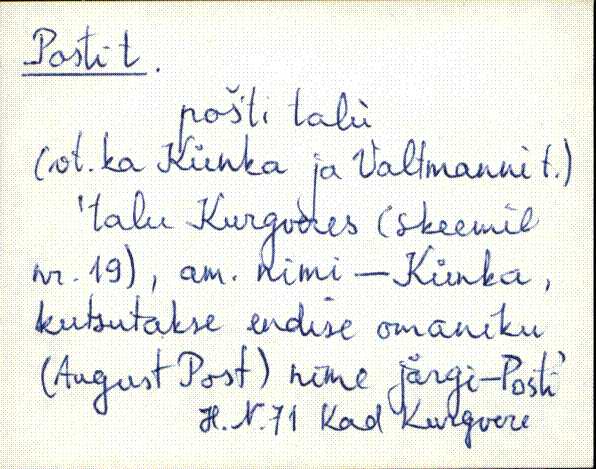 Posti t.
pošti talù
(vt. ka Künka ja Valtmanni t.)
'talu Kurgveres (skeemil
nr. 19), am. nimi — Künka,
kutsutakse endise omaniku
(August Post) nime järgi – Posti'
H. N. 71 Kad Kurgvere